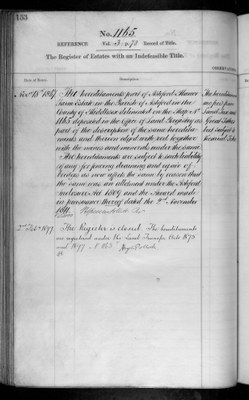 153
No. 1165.
REFERENCE Vol. 3. 673 Record of Title.
The Register of Estates with an Indefeasible Title.
Date of Entry.
Description.
Nov 15th 1867
The hereditaments part of Ashford Manor
Farm Estate in the Parish of Ashford in the
County of Middlesex delineated on the Map No
1165 deposited in the Office of Land Registry as
part of the description of the same heredita-
ments and therein edged with red together
with the mines and minerals under the same
The hereditaments are subject to such liability
if any for fencing draining and repair of
the same was an allotment under the Ashford
Inclosure Act 1809 and the Award made
in pursuance thereof dated the 2nd November
1811.
2nd Feb 1877
The Register is closed. The hereditaments
are registered under the Land Transfer Acts 1875
The hereditaments
are free from
Land Tax and
Great Tithes
but subject to